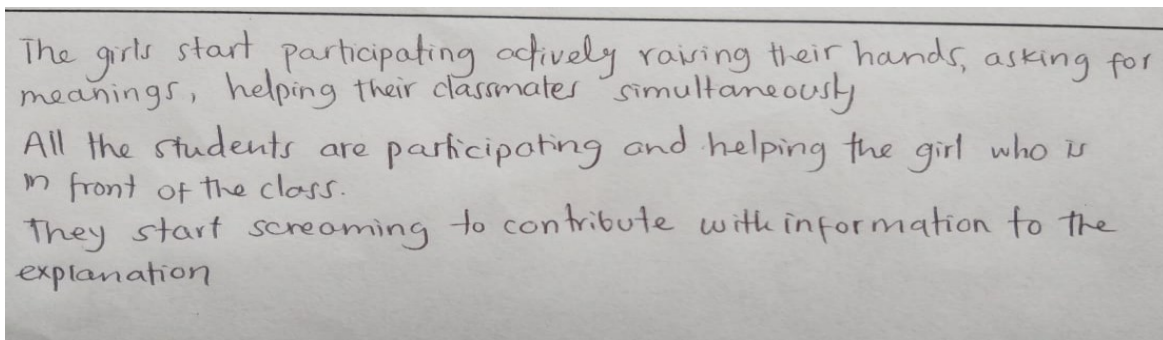 The girls start participating actively raising their hands, asking for
meanings, helping their classmates simultaneously
All the students are participating and helping the girl who is
in front of the class.
They start screaming to contribute with information to the
explanation